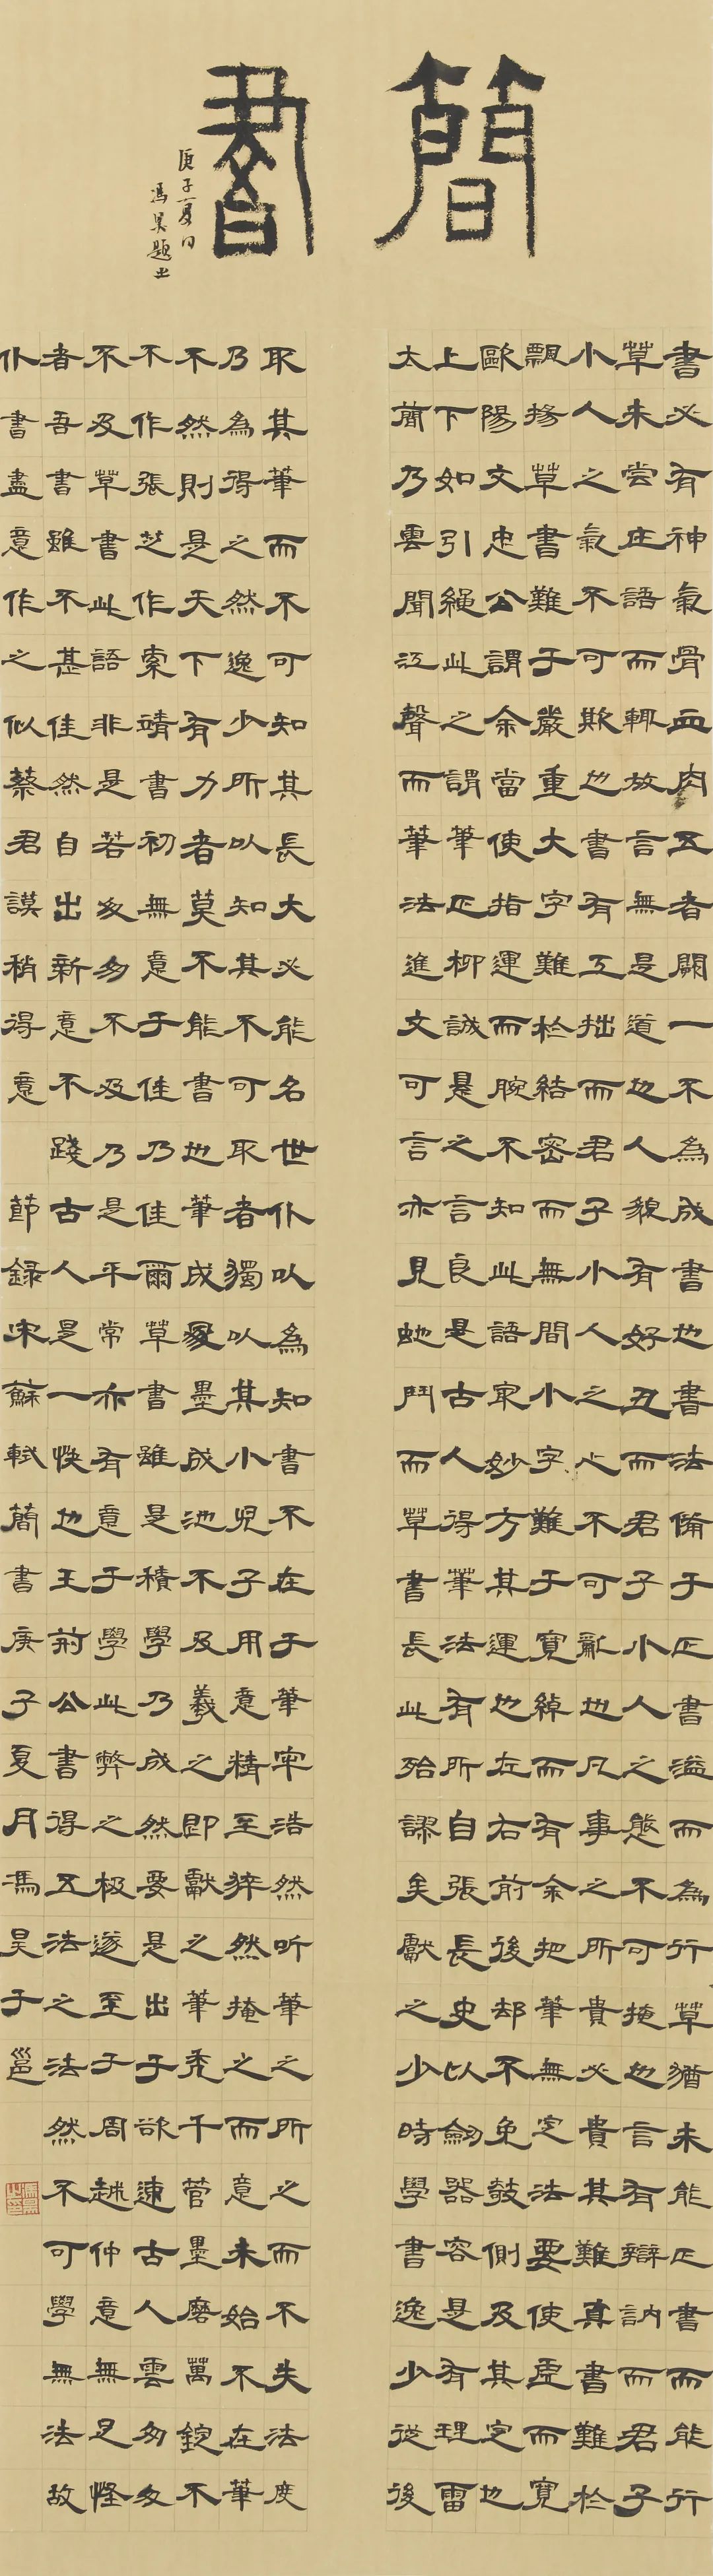 簡書
庚子夏日
馮昊題耑
書必有神氣骨血肉五者闕一不為成書也書法備于正書溢而為行草猶未能正書而能行
草未嘗庄語而輒放言無是道也人貌有好丑而君子小人之態不可掩也言有辯訥而君子
小人之氣不可欺也書有工拙而君子小人之心不可亂也凡事之所貴必貴其難真書難於
飄揚草書難于嚴重大字難於結密而無間小字難于寬綽而有余把筆無定法要使虛而寬
歐陽文忠公謂余當使指運而腕不知此語最妙方其運也左右前後却不免攲側及其定也
上下如引繩此之謂筆正柳誠是之言良是古人得筆法有所自張長史以劍器容是有理雷
太簡乃雲聞江聲而筆法進文可言亦見虵鬥而草書長此殆謬矣獻之少時學書逸少從後
取其筆而不可知其長大必能名世仆以為知書不在于筆牢浩然听筆之所之而不失法度
乃為得之然逸少所以知其不可取者獨以其小兒子用意精至猝然掩之而意未始不在筆
不然則是天下有力者莫不能書也筆成冢墨成池不及羲之即獻之筆禿千管墨磨萬鋌不
不作張芝作索靖書初無意于佳乃佳爾草書雖是積學乃成然要是出于欲速古人雲匆匆
不及草書此語非是若匆匆不及乃是平常亦有意于學此弊之極遂至于周越仲意無足怪
者吾書雖不甚佳然自出新意不踐古人是一快也王荊公書得五法之法然不可學無法故
仆書盡意作之似蔡君謨稍得意 節録宋蘇軾簡書庚子夏月馮昊于邕